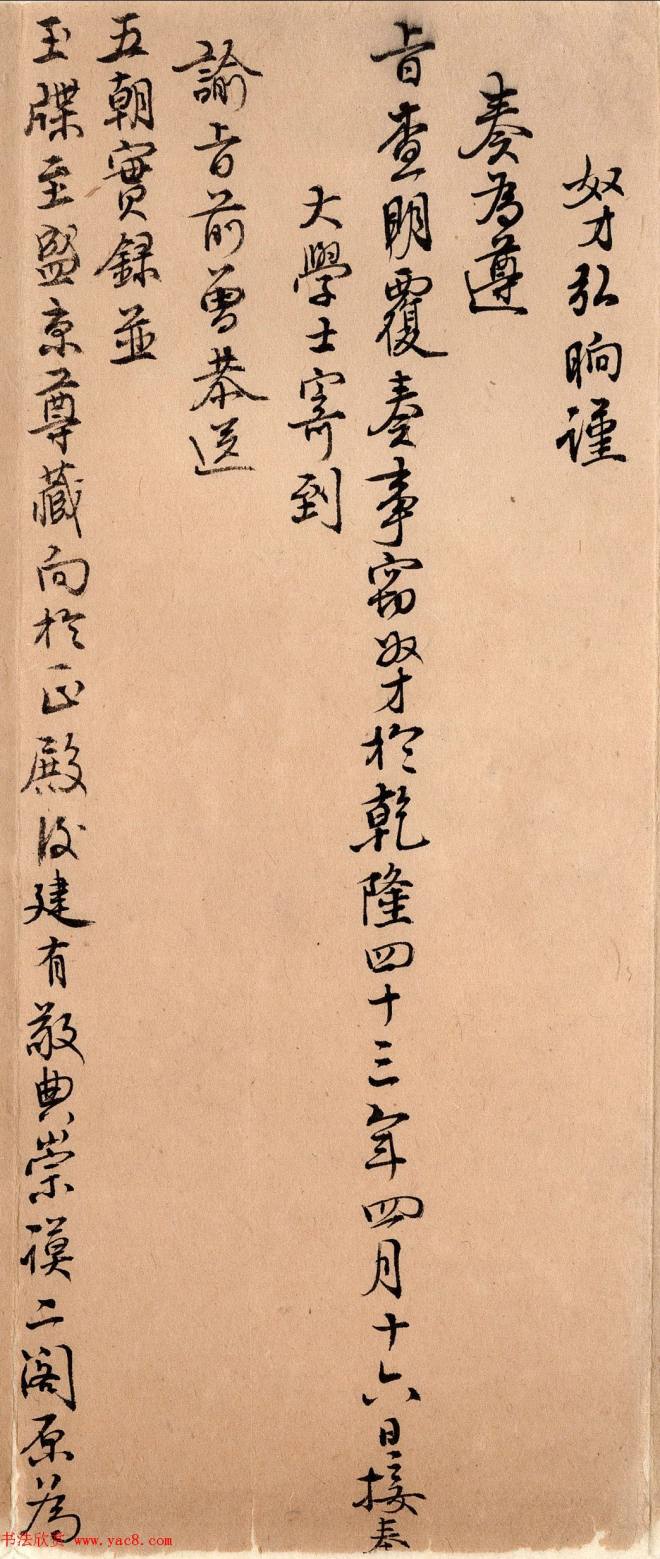 奴才弘晌謹
奏為遵
旨查明覆奏事竊奴才於乾隆四十三年四月十六日接奉
大學士寄到
諭旨前曾恭送
五朝實録並
玉牒至盛京尊藏向於正殿後建有敬典崇謨二閣原為
书法欣赏 www.yac8.com